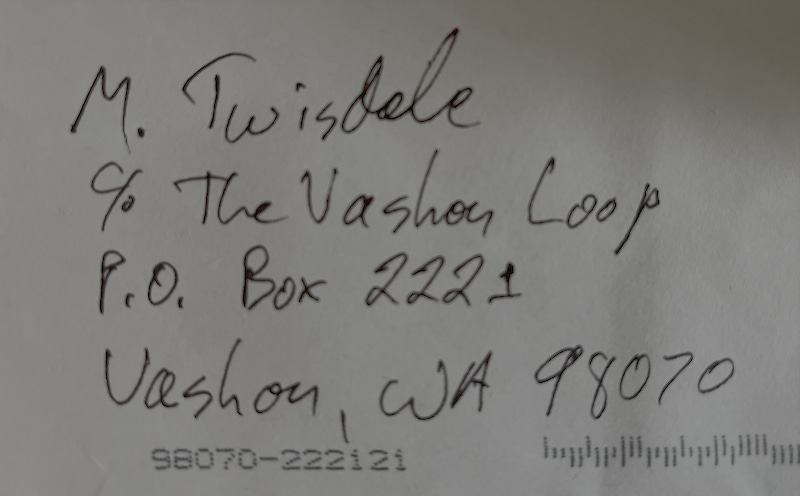 M. Twisdale
℅ The Vashon Loop
P.O. Box 2221
Vashon, WA 98070
98070-222121